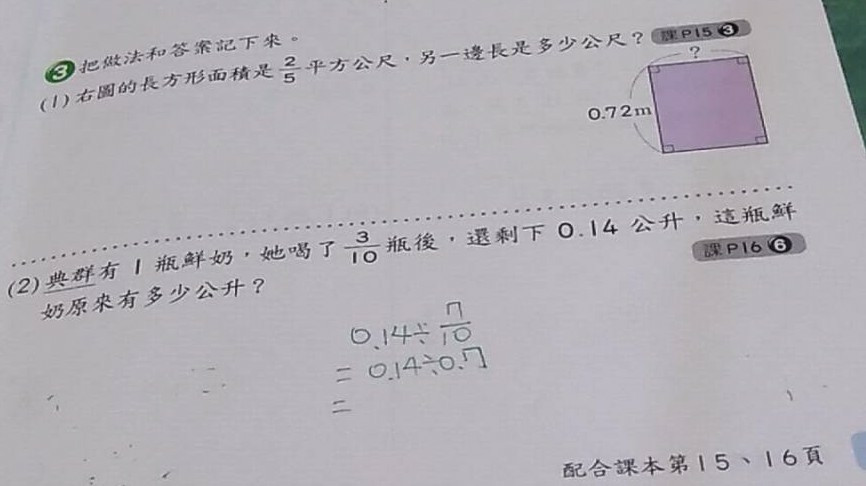 3 把做法和答案記下來。
(1) 右圖的長方形面積是 2/5 平方公尺，另一邊長是多少公尺？ 課P15 3
?
0.72m
(2) 典群有 1 瓶鮮奶，她喝了 3/10 瓶後，還剩下 0.14 公升，這瓶鮮
奶原來有多少公升？ 課P16 6
0.14÷7/10
=0.14÷0.7
=
配合課本第15、16頁